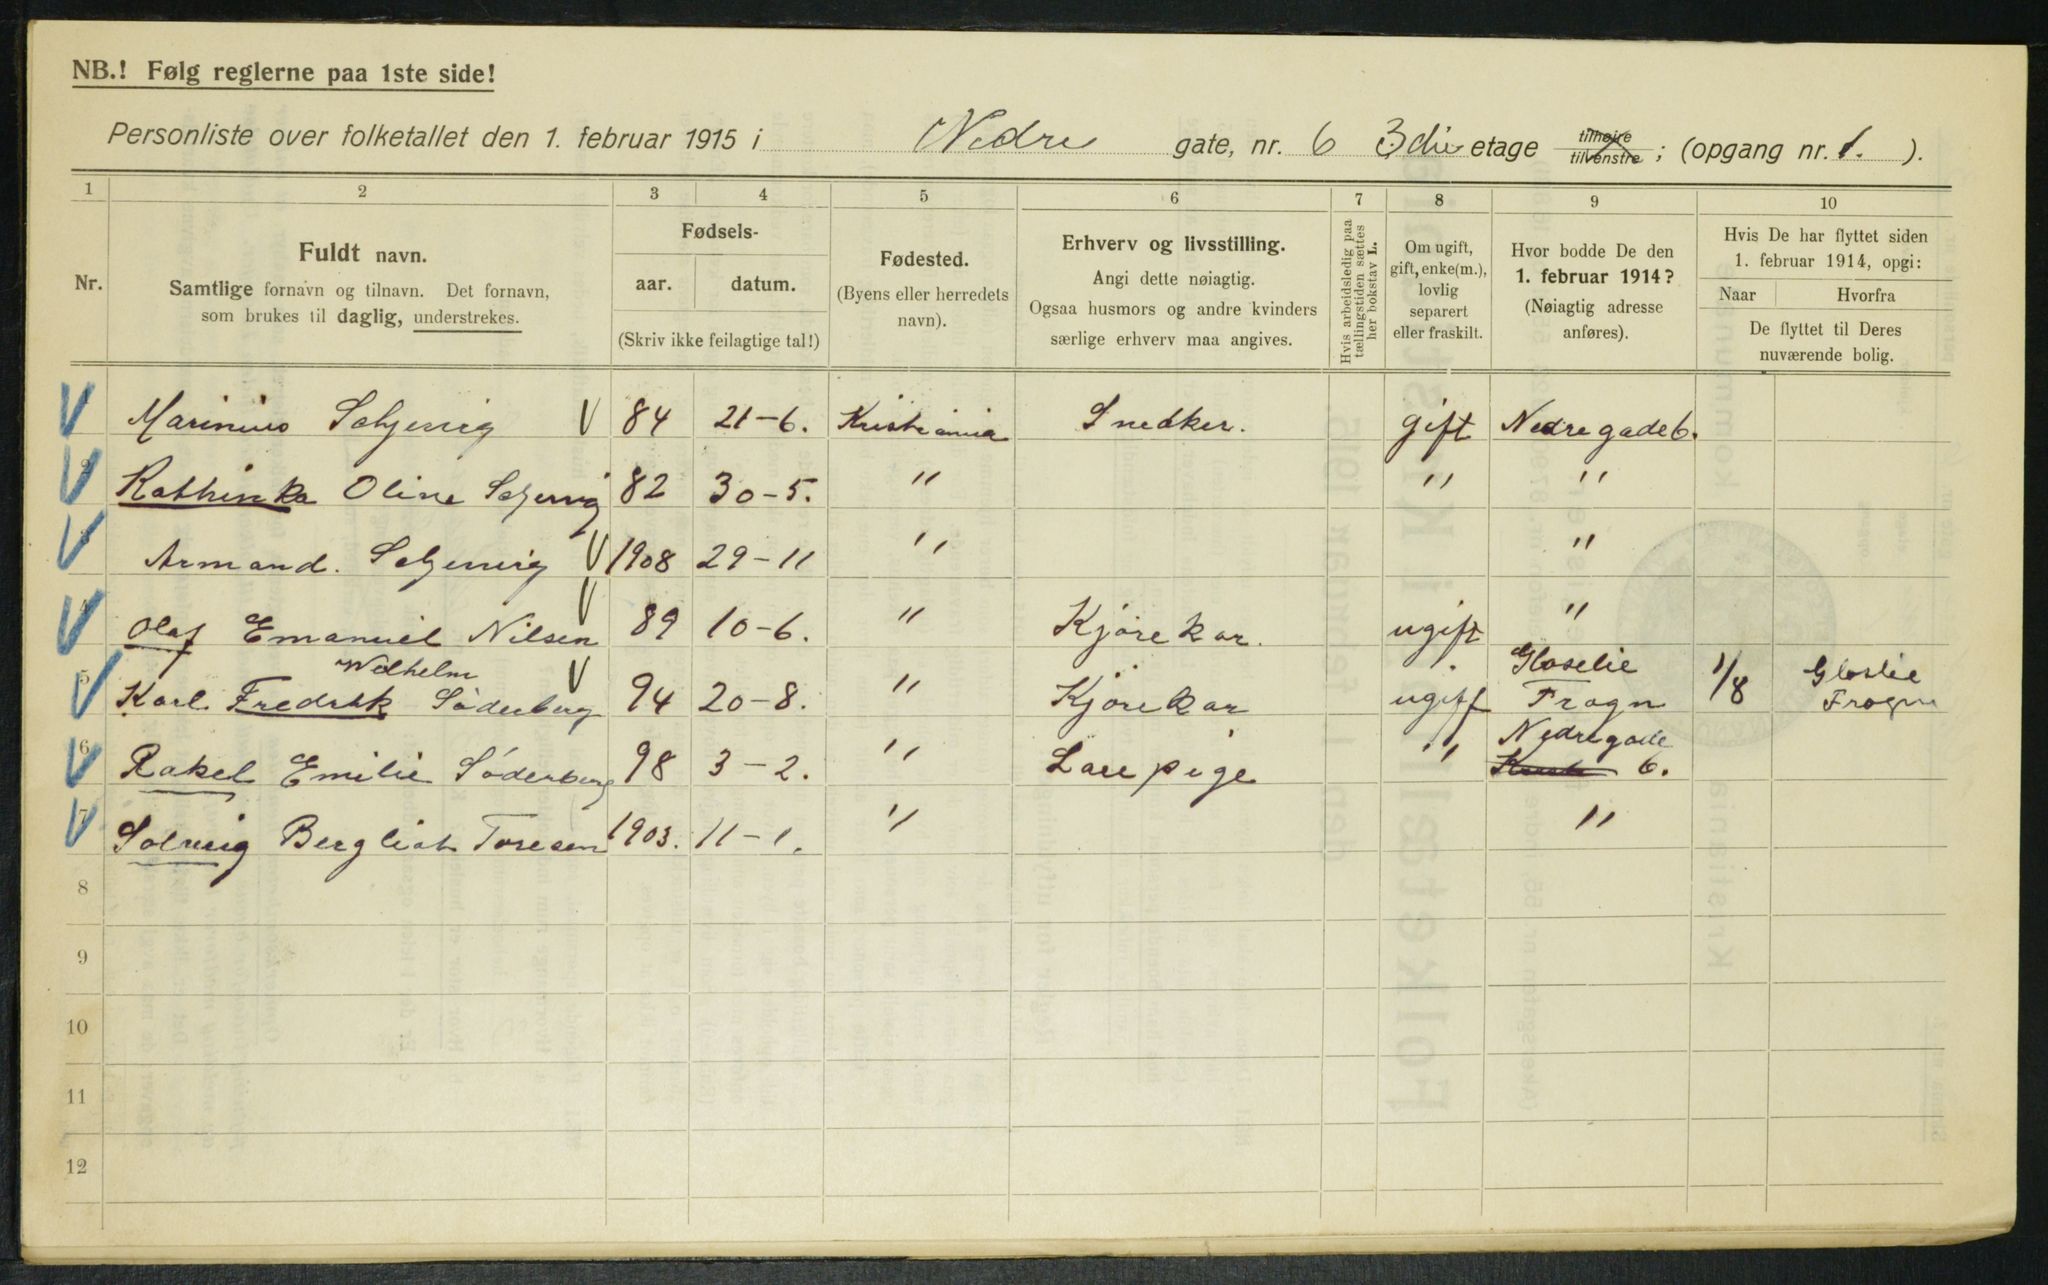 NB.! Følg reglerne paa 1ste side!
Personliste over folketallet den 1. februar 1915 i Nedre gate, nr. 6 3die etage tilhøire tilvenstre ; (opgang nr. 1. ).
1 2 3 4 5 6 7 8 9 10
Nr.
Fuldt navn.
Samtlige fornavn og tilnavn. Det fornavn,
som brukes til daglig, understrekes.
Fødsels-
aar. datum.
(Skriv ikke feilagtige tal!)
Fødested.
(Byens eller herredets
navn).
Erhverv og livsstilling.
Angi dette nøiagtig.
Ogsaa husmors og andre kvinders
særlige erhverv maa angives.
Hvis arbeidsledig paa
tællingstiden sættes
her bokstav L.
Om ugift,
gift, enke(m.),
lovlig
separert
eller fraskilt.
Hvor bodde De den
1. februar 1914?
(Nøiagtig adresse
anføres).
Hvis De har flyttet siden
1. februar 1914, opgi:
Naar Hvorfra
De flyttet til Deres
nuværende bolig.
1 Marinius V 84 21-6. Kristiania Snedker. gift Nedregade 6.
2 Kathinka Oline 82 30-5. " " "
3 Armand. V 1908 29-11 " "
4 Olaf Emanuel Nilsen V 89 10-6. " Kjørekar. ugift "
5 Karl Fredrik Wilhelm Söderberg V 94 20-8. " Kjørekar ugift Frogn 1/8 Frogn
6 Rakel Emilie Söderberg 98 3-2. " Lærepige " Nedregade 6.
7 Solveig Bergliot Toresen 1903. 11-1. " "
8
9
10
11
12